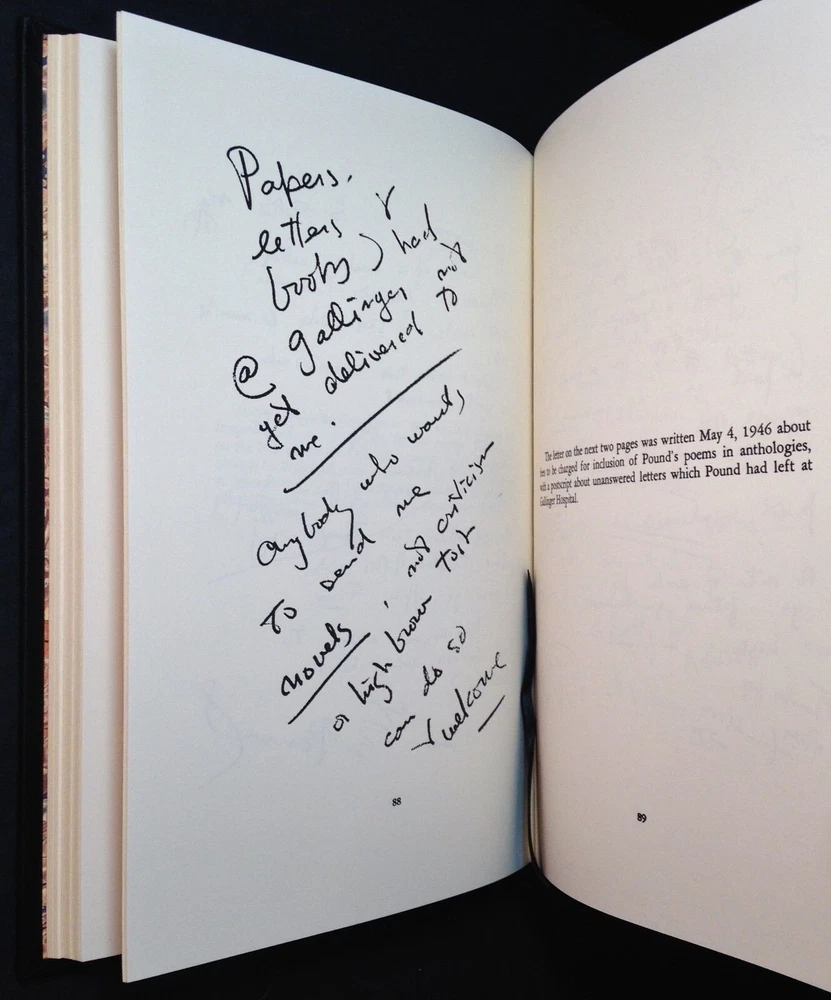 Papers.
letters &
books) had
@ Gallinger
not
yet delivered to
me.
anybody who wants
to send me
novels, not criticism
or high brow tosh
can do so
& welcome
88
The letter on the next two pages was written May 4, 1946 about
fees to be charged for inclusion of Pound's poems in anthologies,
with a postscript about unanswered letters which Pound had left at
Gallinger Hospital.
89